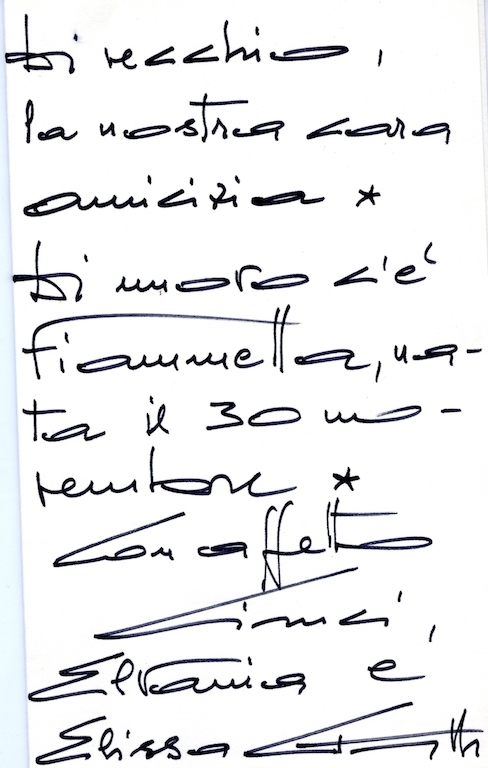 Di vecchio,
la nostra cara
amicizia *
Di nuovo c'è
Fiammella, na-
ta il 30 no-
vembre *
Con affetto
e
Elissa